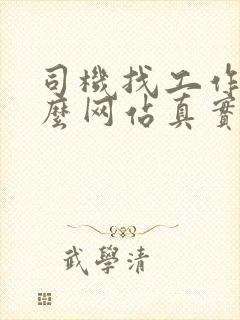 司機找工作
麼网佔真實
武學清